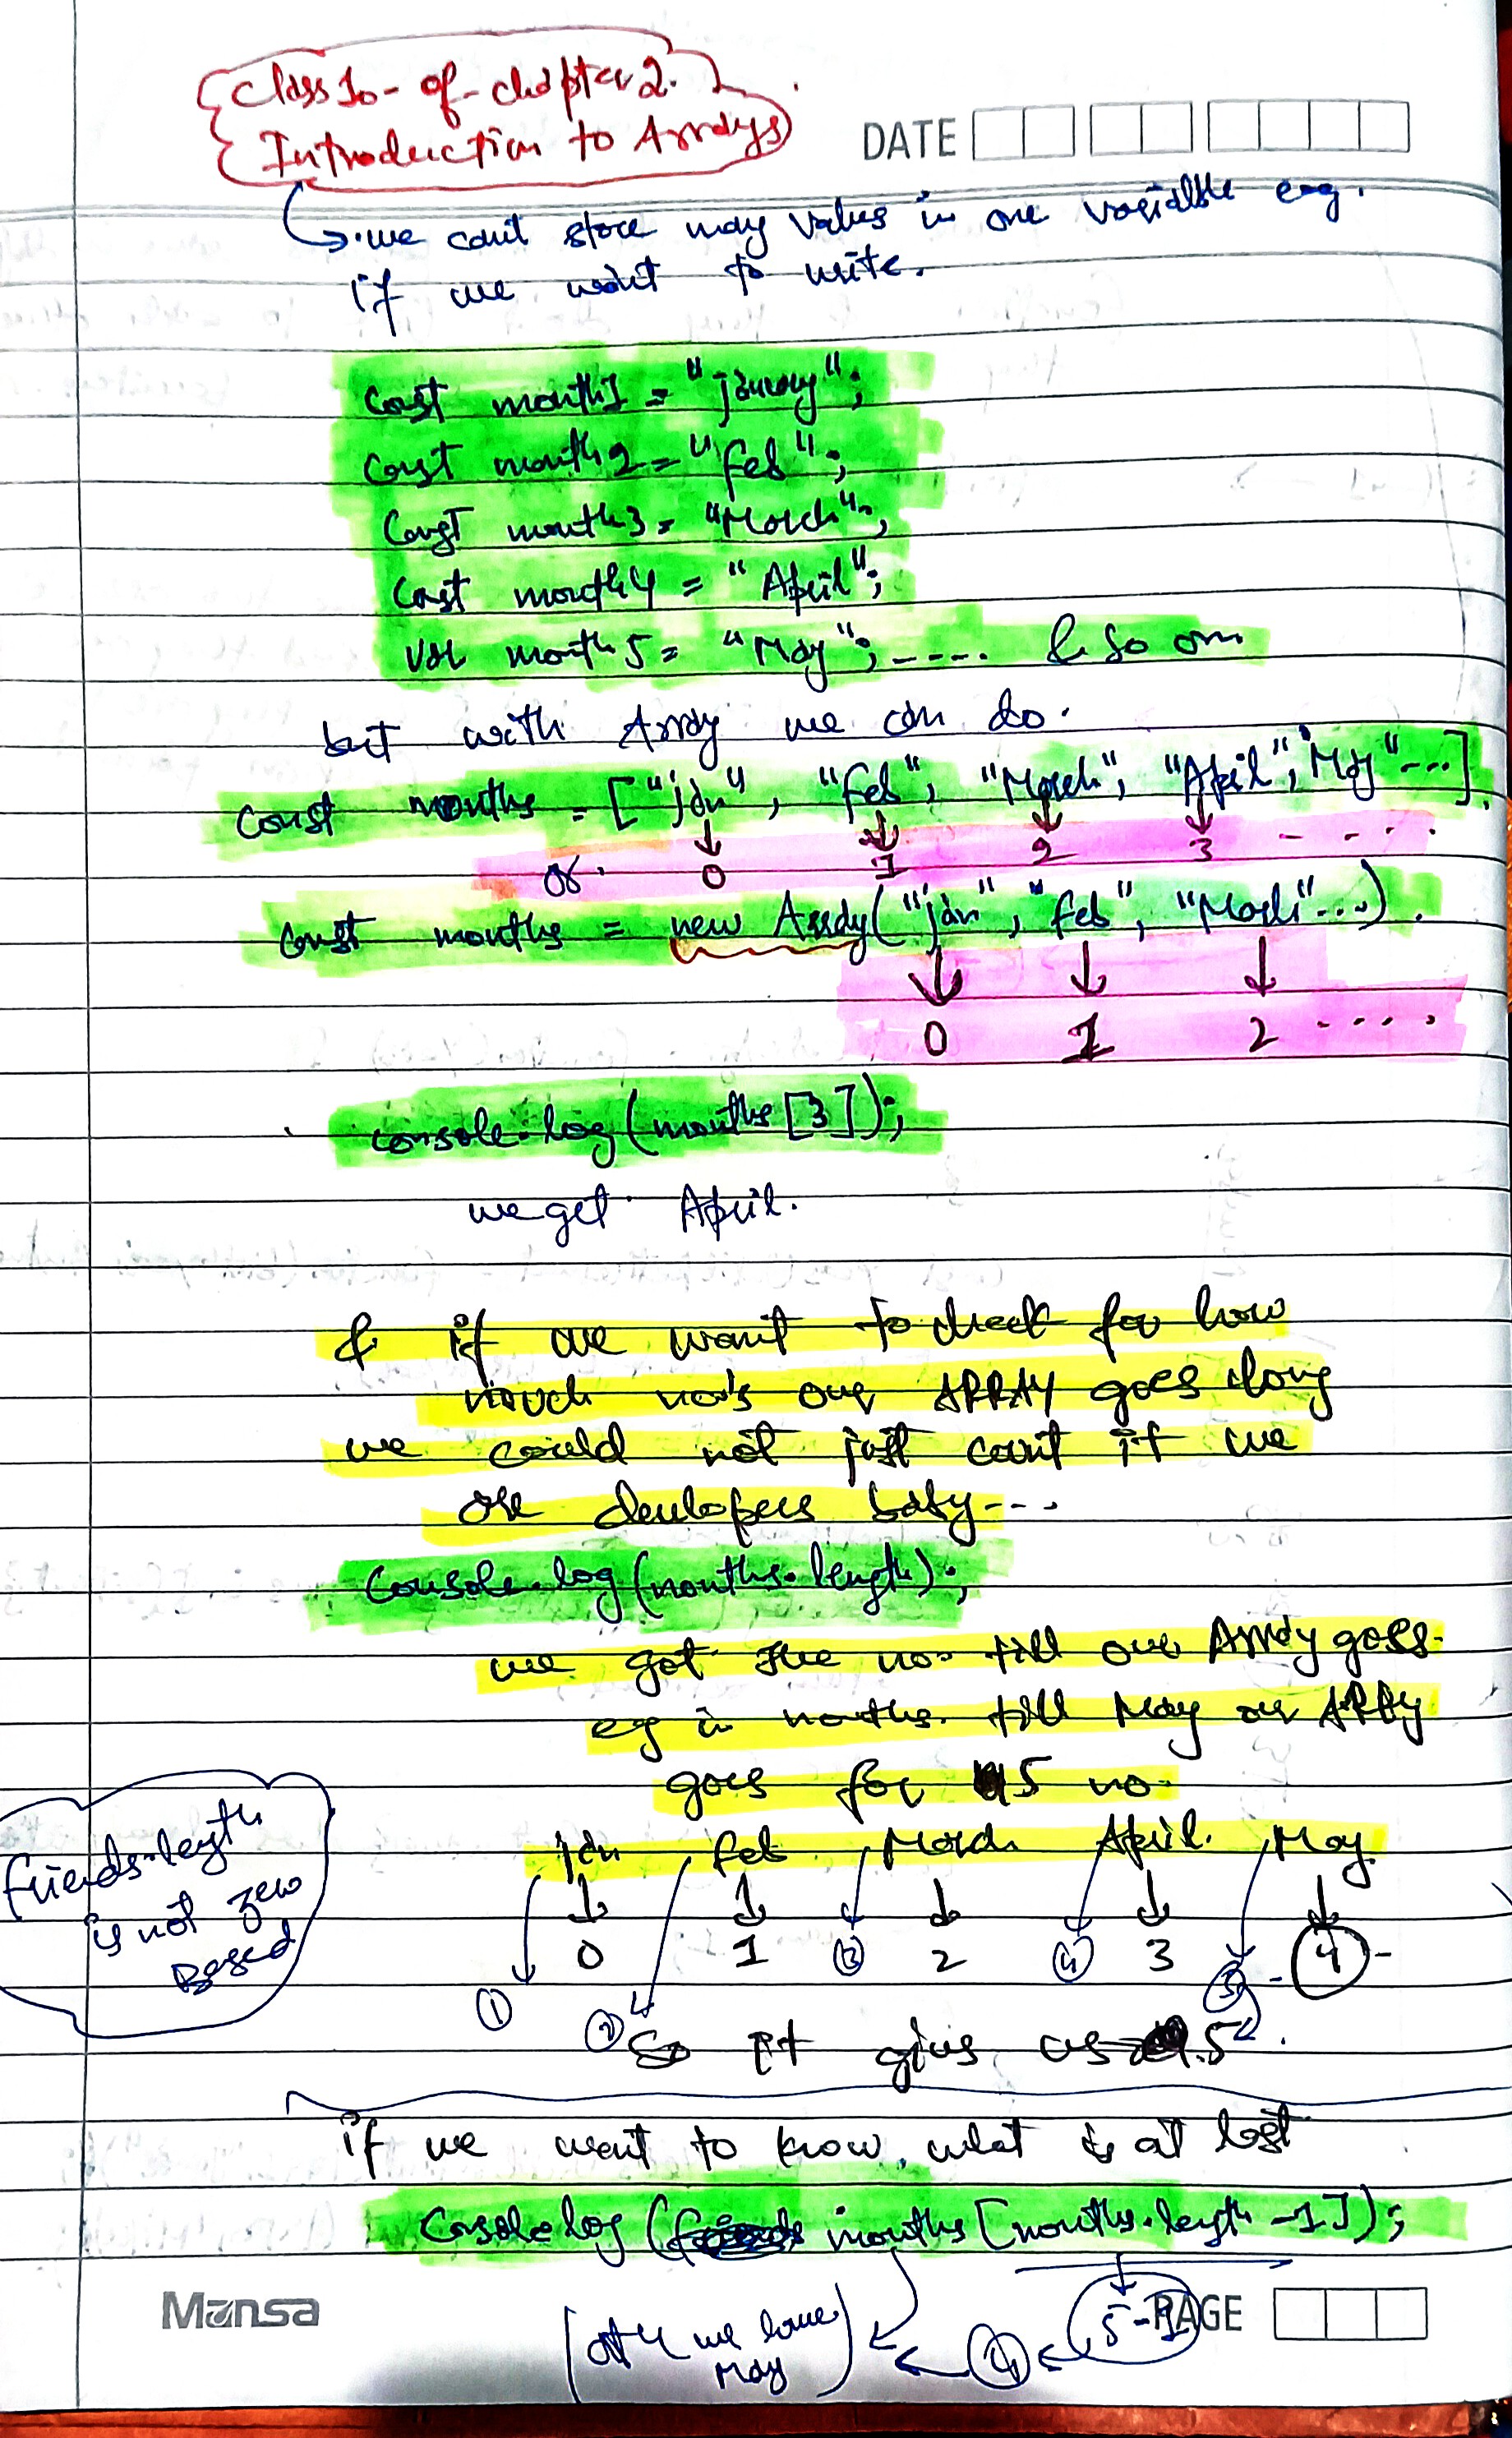 class 10 - of - chapter 2.
Introduction to Arrays
DATE
we can't store many values in one variable e.g.
if we want to write.
const month1 = "janury";
const month2 = "feb";
const month3 = "March";
const month4 = "April";
var month5 = "May"; ----. & so on
but with Array we can do.
const months = ["jan", "feb", "March", "April", May"---].
or. 0 1 2 3 - - - -.
const months = new Array("jan", "feb", "March"---).
0 1 2 ....
console.log(months[3]);
we get April.
& if we want to check for how
much no's our ARRAY goes long
we could not just count it we
are developers baby---
console.log(months.length);
we got the no. till our Array goes.
eg in months. till May our ARRAY
goes for 5 no.
jan feb March April. May
0 1 ③ 2 ④ 3 ⑤ - ④ -
friends.length
is not zero
Based
① ② So it gives us 5.
if we want to know. what is at last
Console.log (months [months.length -1]);
Mansa
5-1
PAGE
④
(at 4 we have
May)